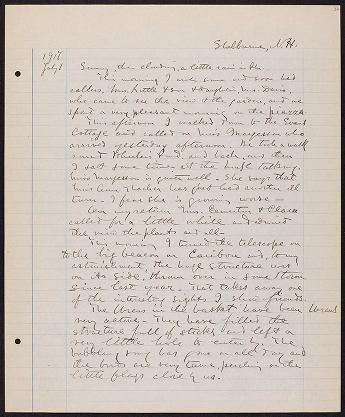 Shelburne, N.H.
1917
July 1
Sunny, then cloudy, a little rain in
This morning I and soon had
callers. Mrs. Little & son & daughter, Mrs. Davis,
who came to see the view & the garden, and we
spent a very pleasant morning on the piazza.
This afternoon I walked down to the
Cottage and called on Miss who
arrived yesterday afternoon. We took a walk
round Wheeler's Pond, and back, and then
I sat some time at the talking.
Miss is quite well. She says that
Miss has just had another ill
turn. I fear she is growing worse.
On my return Mrs. & Clara
called for a little while and admired
the view the plants and all.
This morning I turned the telescope on
to the big beacon on Caribou and, to my
astonishment, the huge structure was
on its side, thrown over in some storm
since last year. That takes away one
of the interesting sights I show friends.
The Wrens in the basket have been
Wrens
very active. They have filled the
structure full of sticks and left a
very little hole to enter by. The
bubbling song has gone on all day and
the birds are very tame, perching on the
little flags close by us.